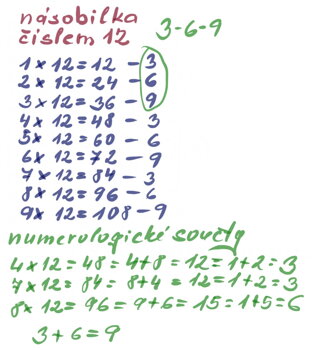 násobilka
číslem 12
3-6-9
1 × 12 = 12 - 3
2 × 12 = 24 - 6
3 × 12 = 36 - 9
4 × 12 = 48 - 3
5 × 12 = 60 - 6
6 × 12 = 72 - 9
7 × 12 = 84 - 3
8 × 12 = 96 - 6
9 × 12 = 108 - 9
numerologické součty
4 × 12 = 48 = 4+8 = 12 = 1+2 = 3
7 × 12 = 84 = 8+4 = 12 = 1+2 = 3
8 × 12 = 96 = 9+6 = 15 = 1+5 = 6
3 + 6 = 9